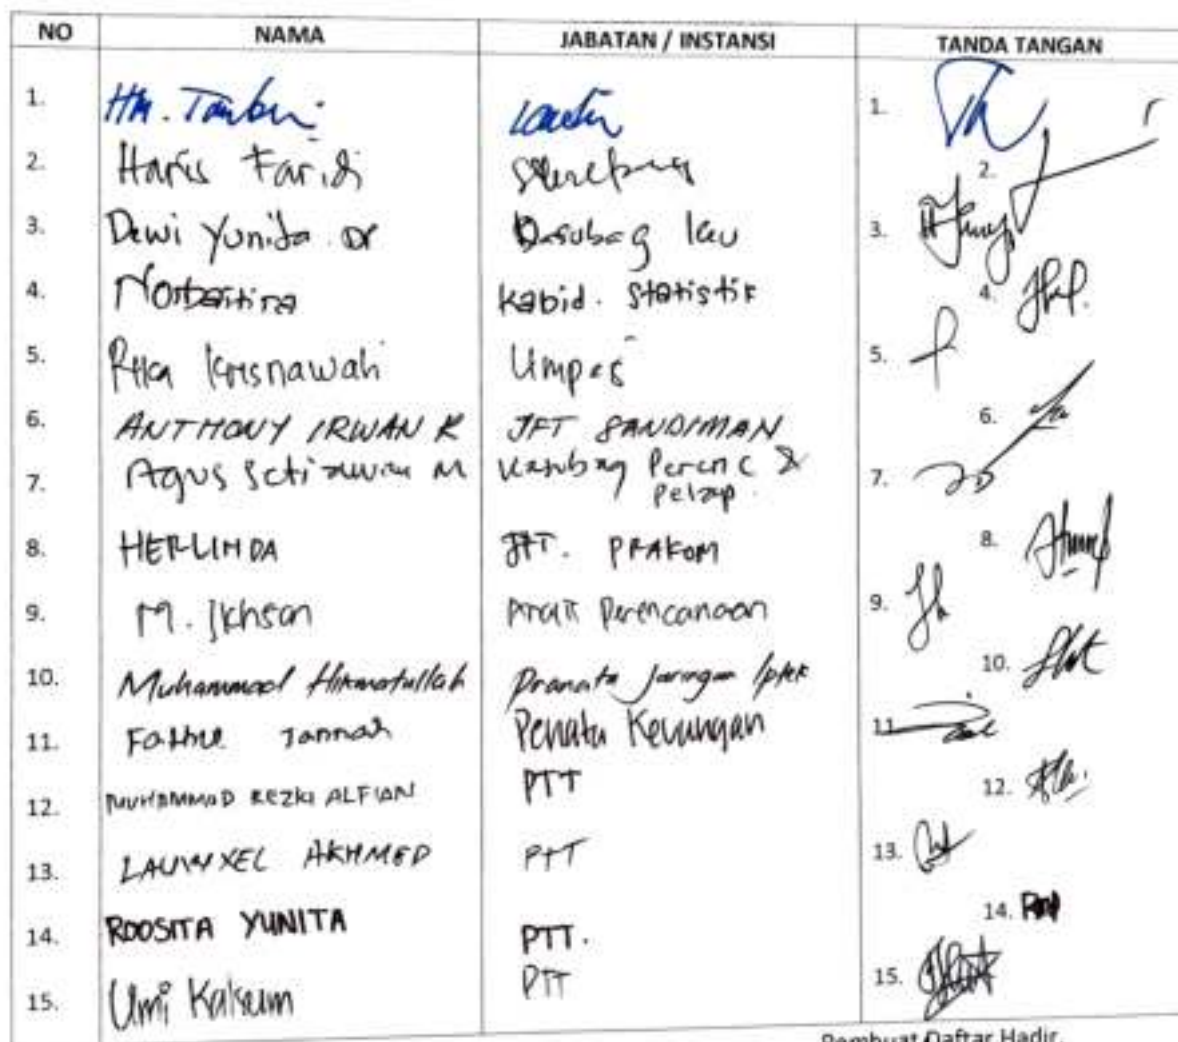 NO NAMA JABATAN / INSTANSI TANDA TANGAN
1. HM. 1.
2. Haris Faridi 2.
3. Dewi Yunita Kasubag keu 3.
4. Norbaitina Kabid. Statistik 4.
5. Rika Krisnawati Umpeg 5.
6. ANTHONY IRWAN R JFT SANDIMAN 6.
7. Agus Setiawan M Kasubag Perenc &
Pelap. 7.
8. HERLINDA JFT. PRAKOM 8.
9. M. Ikhsan Perencanaan 9.
10. Muhammad Hikmatullah Pranata Jaringan Iptek 10.
11. Jannah Penata Keuangan 11.
12. MUHAMMAD REZKI ALFIAN PTT 12.
13. AKHMED PTT 13.
14. ROOSITA YUNITA PTT. 14.
15. Umi Kalsum PTT 15.
Pembuat Daftar Hadir,